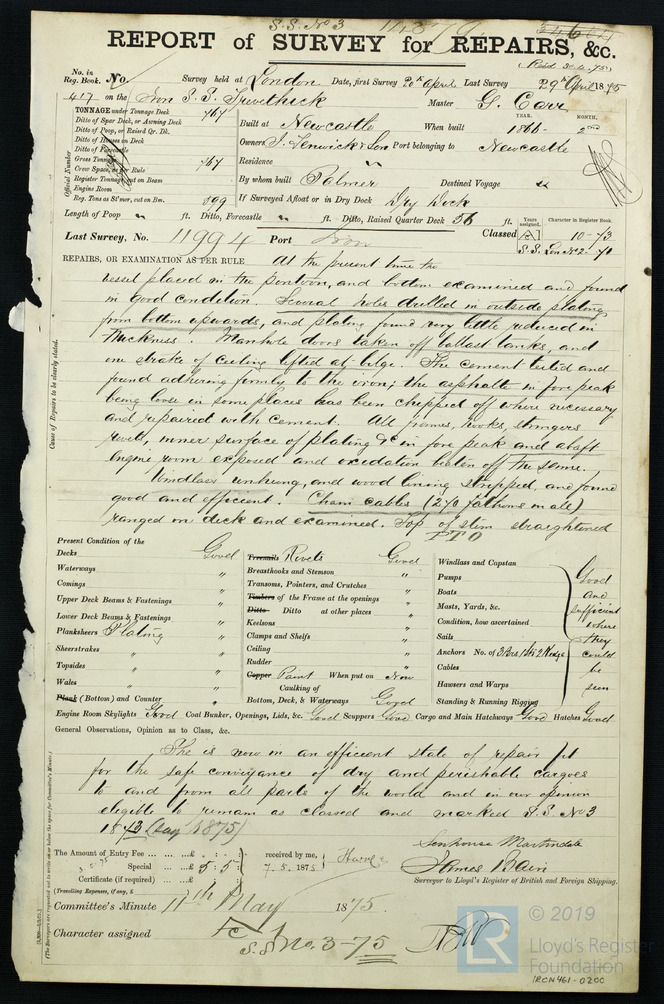 S.S. No 3
REPORT of SURVEY for REPAIRS, &c.
No. in Reg. Book. No. Survey held at London Date, first Survey 20th April Last Survey 29th April 1875
417 on the Iron S.S. Trevithick Master G. Carr
TONNAGE under Tonnage Deck 767
Ditto of Spar Deck, or Awning Deck
Ditto of Poop, or Raised Qr. Dk.
Ditto of Houses on Deck
Ditto of Forecastle
Gross Tonnage 767
Crew Space, as per Rule
Register Tonnage, cut on Beam
Engine Room
Reg. Tons as St'mer, cut on Bm.
Official Number
Built at Newcastle When built YEAR. MONTH.
Owners J. Fenwick & Son Port belonging to Newcastle
Residence "
By whom built Palmer Destined Voyage
If Surveyed Afloat or in Dry Dock Dry Dock
Length of Poop " ft. Ditto, Forecastle " ft. Ditto, Raised Quarter Deck 56 ft. Years assigned. Character in Register Book.
Last Survey, No. 11994 Port Classed 10-73
S.S. Lon No 2-70
REPAIRS, OR EXAMINATION AS PER RULE At the present time the
vessel placed in the pontoon, and bottom examined and found
in good condition. Several holes drilled in outside plating
from bottom upwards, and plating found very little reduced in
thickness. Manhole doors taken off ballast tanks, and
one strake of ceiling lifted at bilge. The cement tested and
found adhering firmly to the iron; the asphalte in fore peak
being loose in some places has been chepped off where necessary
and repaired with cement. All frames, hooks, stringers
rivets, inner surface of plating &c in fore peak and abaft
Engine room exposed and oxidation beaten off the same.
Windlass unhung, and wood lining stripped, and found
good and efficient. Chain cables (270 fathoms in all)
ranged on deck and examined. Top of stem straightened
PTO
Cause of Repairs to be clearly stated.
Present Condition of the
Decks Good
Waterways "
Comings "
Upper Deck Beams & Fastenings "
Lower Deck Beams & Fastenings "
Planksheers Plating "
Sheerstrakes "
Topsides "
Wales "
Plank (Bottom) and Counter "
Treenails Rivets Good
Breasthooks and Stemson "
Transoms, Pointers, and Crutches "
Timbers of the Frame at the openings "
Ditto Ditto at other places "
Keelsons "
Clamps and Shelfs "
Ceiling "
Rudder "
Copper Paint When put on Now
Caulking of
Bottom, Deck, & Waterways Good
Windlass and Capstan
Pumps
Boats
Masts, Yards, &c.
Condition, how ascertained
Sails
Anchors No. of
Cables
Hawsers and Warps
Standing & Running Rigging
Good
and
sufficient
where
they
could
be
seen
Engine Room Skylights Good Coal Bunker, Openings, Lids, &c. Good Scuppers Good Cargo and Main Hatchways Good Hatches Good
General Observations, Opinion as to Class, &c.
She is now in an efficient state of repair fit
for the safe conveyance of dry and perishable cargoes
to and from all parts of the world and in our opinion
eligible to remain as classed and marked S.S. No 3
1873 (say 1875)
The Amount of Entry Fee ... ... £ : :
Special ... ... £ 5 : 5 :
Certificate (if required) ... £ : :
(Travelling Expenses, if any, £
received by me,
7.5.1875
Senhouse Martindale
James Bain
Surveyor to Lloyd's Register of British and Foreign Shipping.
Committee's Minute 11th May 1875.
Character assigned
S.S. No. 3-75
(The Surveyors are requested not to write on or below the space for Committee's Minute.)
© 2019
LR
Lloyd's Register
Foundation
IRON461-0200